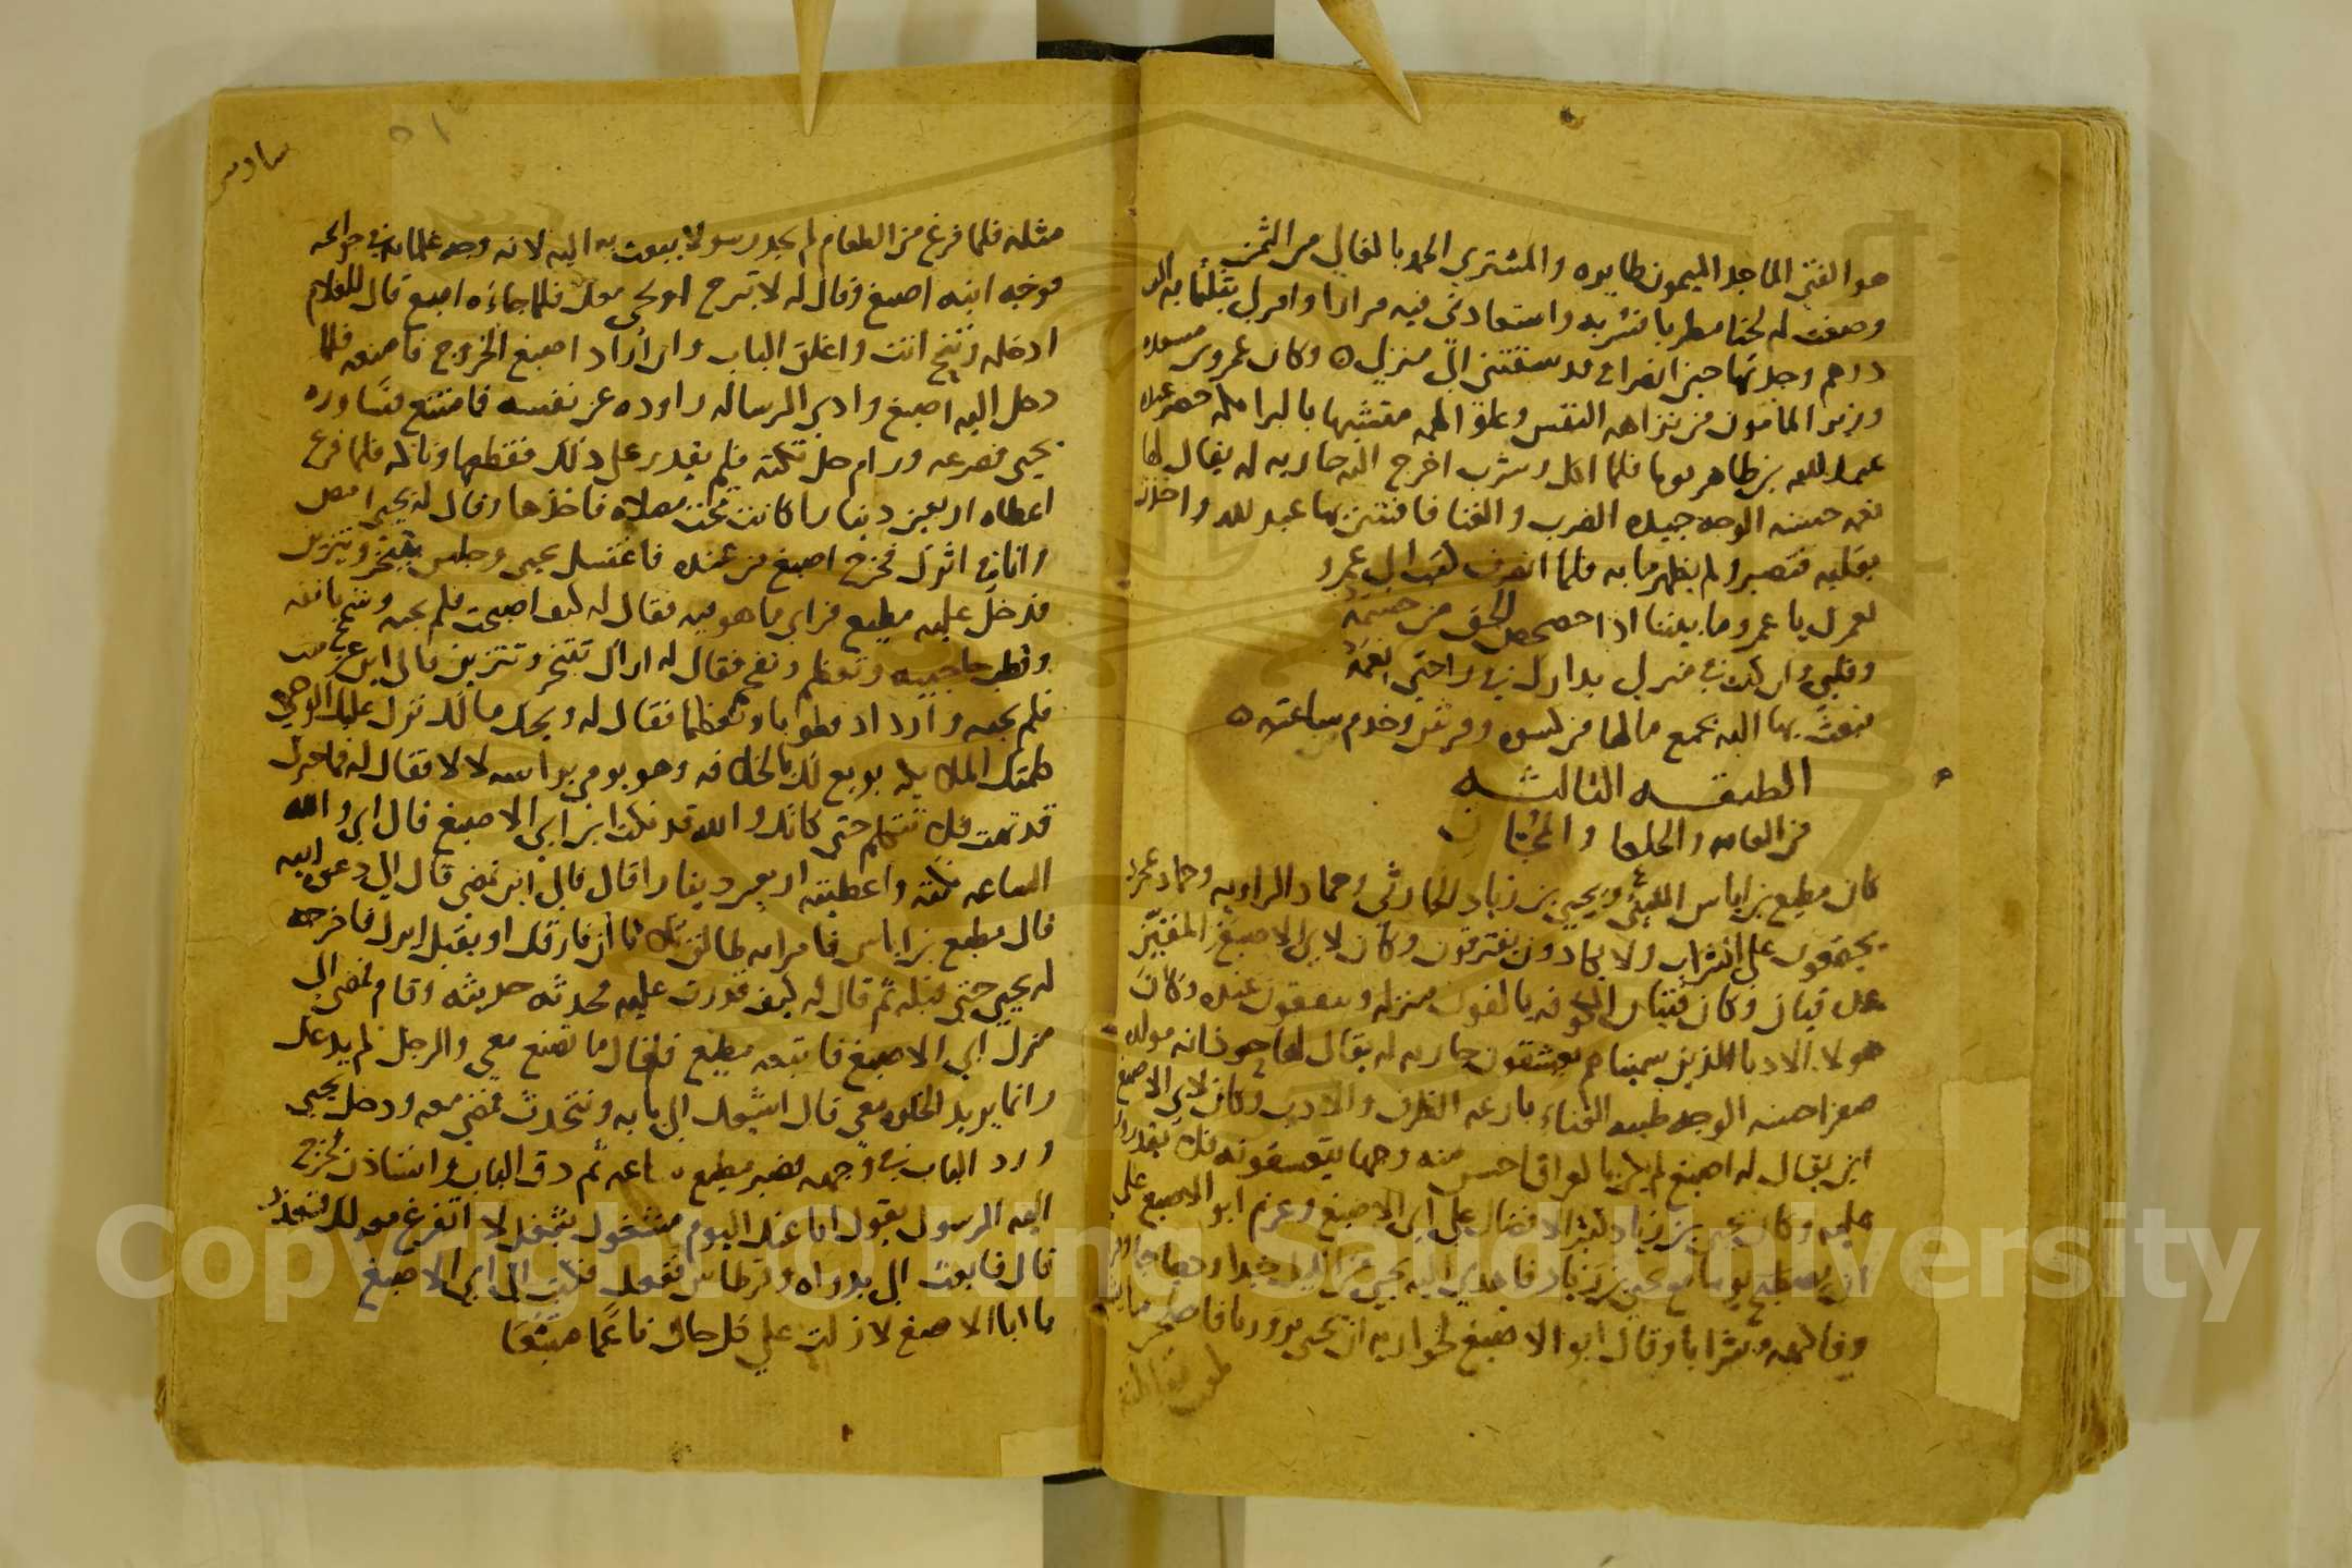 هو الفتى الماجد الميمون طايره والمشتري الحمد بالغالي من الثمن
وصغت له لحنا مطربا فشربه واستعادنى فيه مرارا وامر لي بثلثماية الف
درهم وجدتها حين انصرافي قد سبقتني الى منزلي ه وكان عمرو بن مسعده
وزير المامون من نزاهه النفس وعلو الهمه متشبها بالبرامكه حضر عنده
عبد الله بن طاهر يوما فلما اكل وشرب اخرج اليه جاريه له يقال لها
نعم حسنه الوجه جيده الضرب والغنا فافتتن بها عبد الله واخذت
بقلبه فتصبر ولم يظهر ما به فلما انصرف كتب الى عمرو
لعمرك يا عمرو ما بيننا اذا حصحص الحق من حشمه
وقلبي وان كنت في منزلي بدارك في راحتي نعمه
فبعث بها اليه بجميع مالها من كسوه وفرش وخدم ساعته ه
الطبقه الثالثه
من العامه والخلعا والمجان
كان مطيع بن اياس الليثي ويحيى بن زياد الحارثي وحماد الراويه وحماد عجرد
يجتمعون على الشراب ولا يكادون يفترقون وكان لابي الاصبغ المقين
عده قيان وكان فتيان الكوفه يالفون منزله وينفقون عنده وكان
هولا الادبا الذين سميناهم يعشقون جاريه له يقال لها خوذانه مولده
صفرا حسنه الوجه طيبه الغناء بارعه الظرف والادب وكان لابي الاصبغ
ابن يقال له اصبغ لم يكن بالعراق احسن منه وجها يتعشقونه فلا يقدرون
عليه وكان يحيى بن زياد كثير الافضال على ابي الاصبغ وعزم ابو الاصبغ على
ان يصطبح يوما مع يحيى بن زياد فاهدى اليه يحيى من الليل جدا ودجاجا
وفاكهه وشرابا وقال ابو الاصبغ لجواريه ان يحيى يزورنا فاصلحن ما يشبه
مثله فلما فرغ من الطعام لم يجد رسولا يبعث به اليه لانه وجه غلمانه في حوائجه
فوجه ابنه اصبغ وقال له لا تبرح او يجي معك فلما جاءه اصبغ قال للغلام
ادخله وتنح انت واغلق الباب وان أراد اصبغ الخروج فامنعه فلما
دخل اليه اصبغ وادى الرساله راوده عن نفسه فامتنع فساوره
يحيى فصرعه ورام حل تكته فلم يقدر على ذلك فقطعها وناكه فلما فرغ
اعطاه اربعين دينارا كانت تحت مصلاه فاخذها وقال له يحيى امض
وانا في اثرك فخرج اصبغ من عنده فاغتسل يحيى وجلس يتبخر ويتزين
فدخل عليه مطيع فراى ما هو فيه فقال له كيف اصبحت فلم يجبه وشمخ بانفه
وقطب حاجبيه وتعظم ونفخ فقال له اراك تتبخر وتتزين فالى اين عزمت
فلم يجبه وازداد قطوبا وتعظما فقال له ويحك ما لك نزل عليك الوحي
كلمتك الملايكه بويع لك بالخلافه وهو يومي براسه لا لا فقال له فما خبرك
قد تهت فلا تتكلم حتى كانك والله قد نكت ابن ابي الاصبغ قال اي والله
الساعه نكته واعطيته اربعين دينارا قال فالى اين تمضي قال الى دعوه ابيه
قال مطيع بن اياس فامراته طالق ثلاثا ان فارقك او يقبل ايرك فاخرجه
له يحيى حتى قبله ثم قال له كيف قدرت عليه فحدثه حديثه وقام فمضى الى
منزل ابي الاصبغ فاتبعه مطيع فقال ما تصنع معي والرجل لم يدعك
وانما يريد الخلوه معي قال اشيعك الى بابه ونتحدث فمضى معه ودخل يحيى
ورد الباب في وجهه فصبر مطيع ساعه ثم دق الباب واستاذن فخرج
اليه الرسول يقول انا عنك اليوم مشغول بشغل لا اتفرغ معه لك فتعذر
قال فابعث الي بدواه وقرطاس ففعل فكتب الى ابي الاصبغ
يا ابا الاصبغ لا زلت على كل حال ناعما متبعا